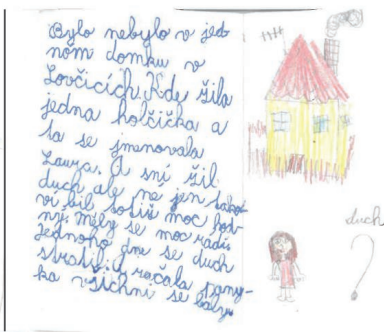 Bylo nebylo v jed
nom domku v
Lovčicích. Kde žila
jedna holčička a
ta se jmenovala
Laura. A sní žil
duch ale né jen takov
ví bil totiš moc hod
ný. měly se moc rádi.
Jednoho dne se duch
stratil. začala pany-
ka všichni se báli
duch
?